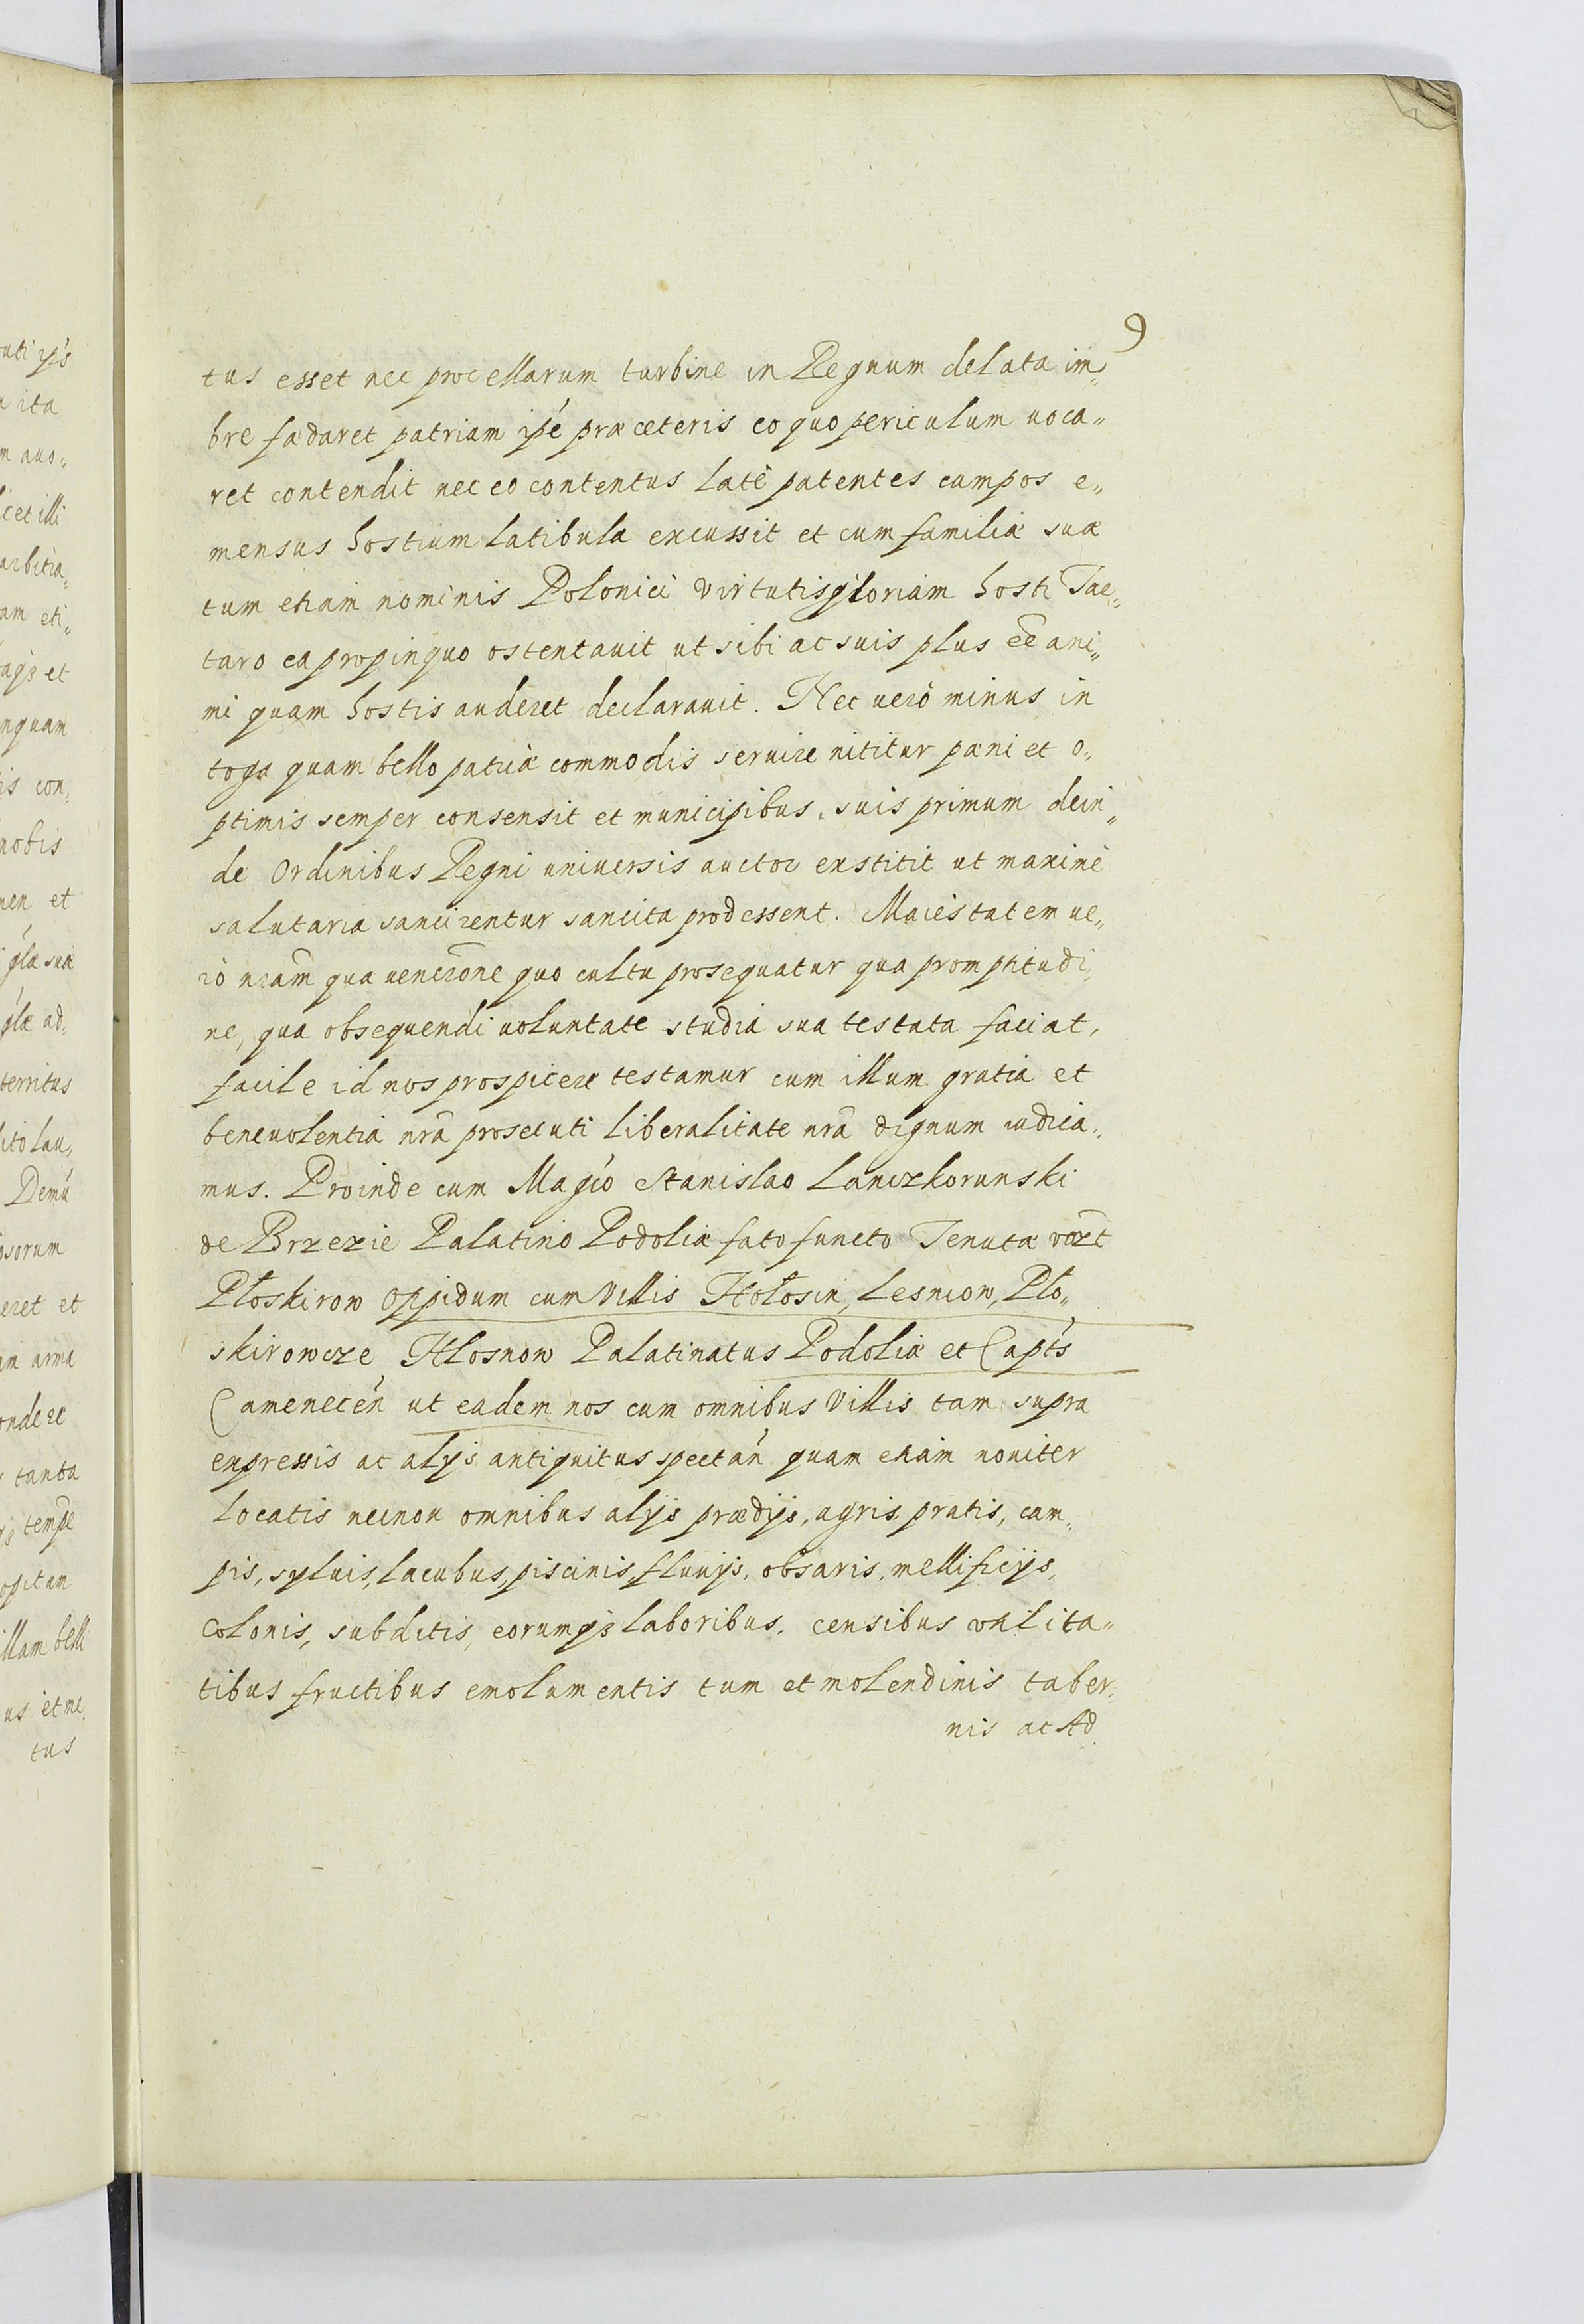 9
tus esset nec procellarum turbine in Regnum delata im„
bre fædaret patriam ipé præ ceteris eo quo periculum uoca„
ret contendit nec eo contentus latè patentes campos e„
mensus hostium latibula excussit et cum familiæ suæ
tum etiam nominis Polonici virtutis gloriam hosti Tae„
taro ea propinquo ostentauit ut sibi ac suis plus eẽ ani„
mi quam hostis auderet declarauit. Nec uerò minus in
toga quam bello patriæ commodis seruire nititur pæni et o„
ptimis semper consensit et municipibus suis primum dein„
de Ordinibus Regni uniuersis auctor exstitit ut maximè
salutaria sancirentur sancita prodessent. Maiestatem ue„
rò nrãm qua venerõne quo cultu prosequatur qua promptitudi„
ne, qua obsequendi uoluntate studia sua testata faciat,
facile id nos prospicere testamur cum illum gratia et
beneuolentia nrã prosecuti liberalitate nrã dignum iudica„
mus. Proinde cum Magco Stanislao Lanczkorunski
de Brzezie Palatino Podoliæ fato functo Tenutæ
Płoskirow oppidum cum Villis Hołosin, Lesniow, Pło„
skirowcze Hlosnow Palatinatus Podoliæ et Capts
Camenecen ut eadem nos cum omnibus Villis tam supra
expressis ac alijs antiquitus spectan quam etiam nouiter
locatis necnon omnibus alijs prædijs, agris, pratis, cam„
pis, syluis, lacubus, piscinis, fluuijs, obsaris, mellificijs,
colonis, subditis, eorumqs laboribus, censibus vtilita„
tibus fructibus emolumentis tum et molendinis taber„
nis ac Ad